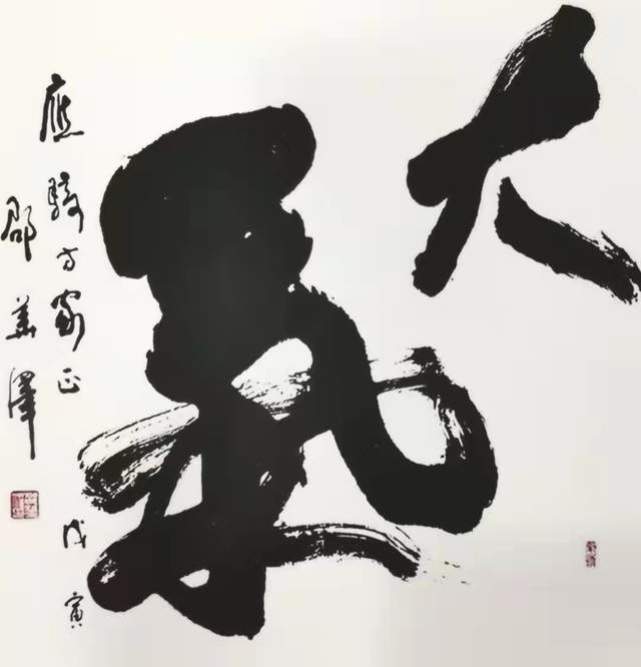 大
氣
應騎方家正 戊寅
邵華澤